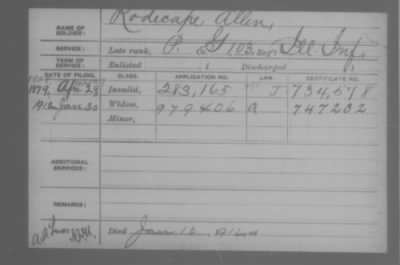 NAME OF SOLDIER: Rodecape Allen,
SERVICE: Late rank, P. Co. G, 103, Reg't Ill Inf.
TERM OF SERVICE: Enlisted , 1 Discharged , 1
DATE OF FILING. CLASS. APPLICATION NO. LAW. CERTIFICATE NO.
1879, Apr. 29 Invalid, 283,165 J 734,578
1912 Jan 30 Widow, 979406 a 747232
Minor,
ADDITIONAL SERVICES:
REMARKS:
Died Jan 10, 1912